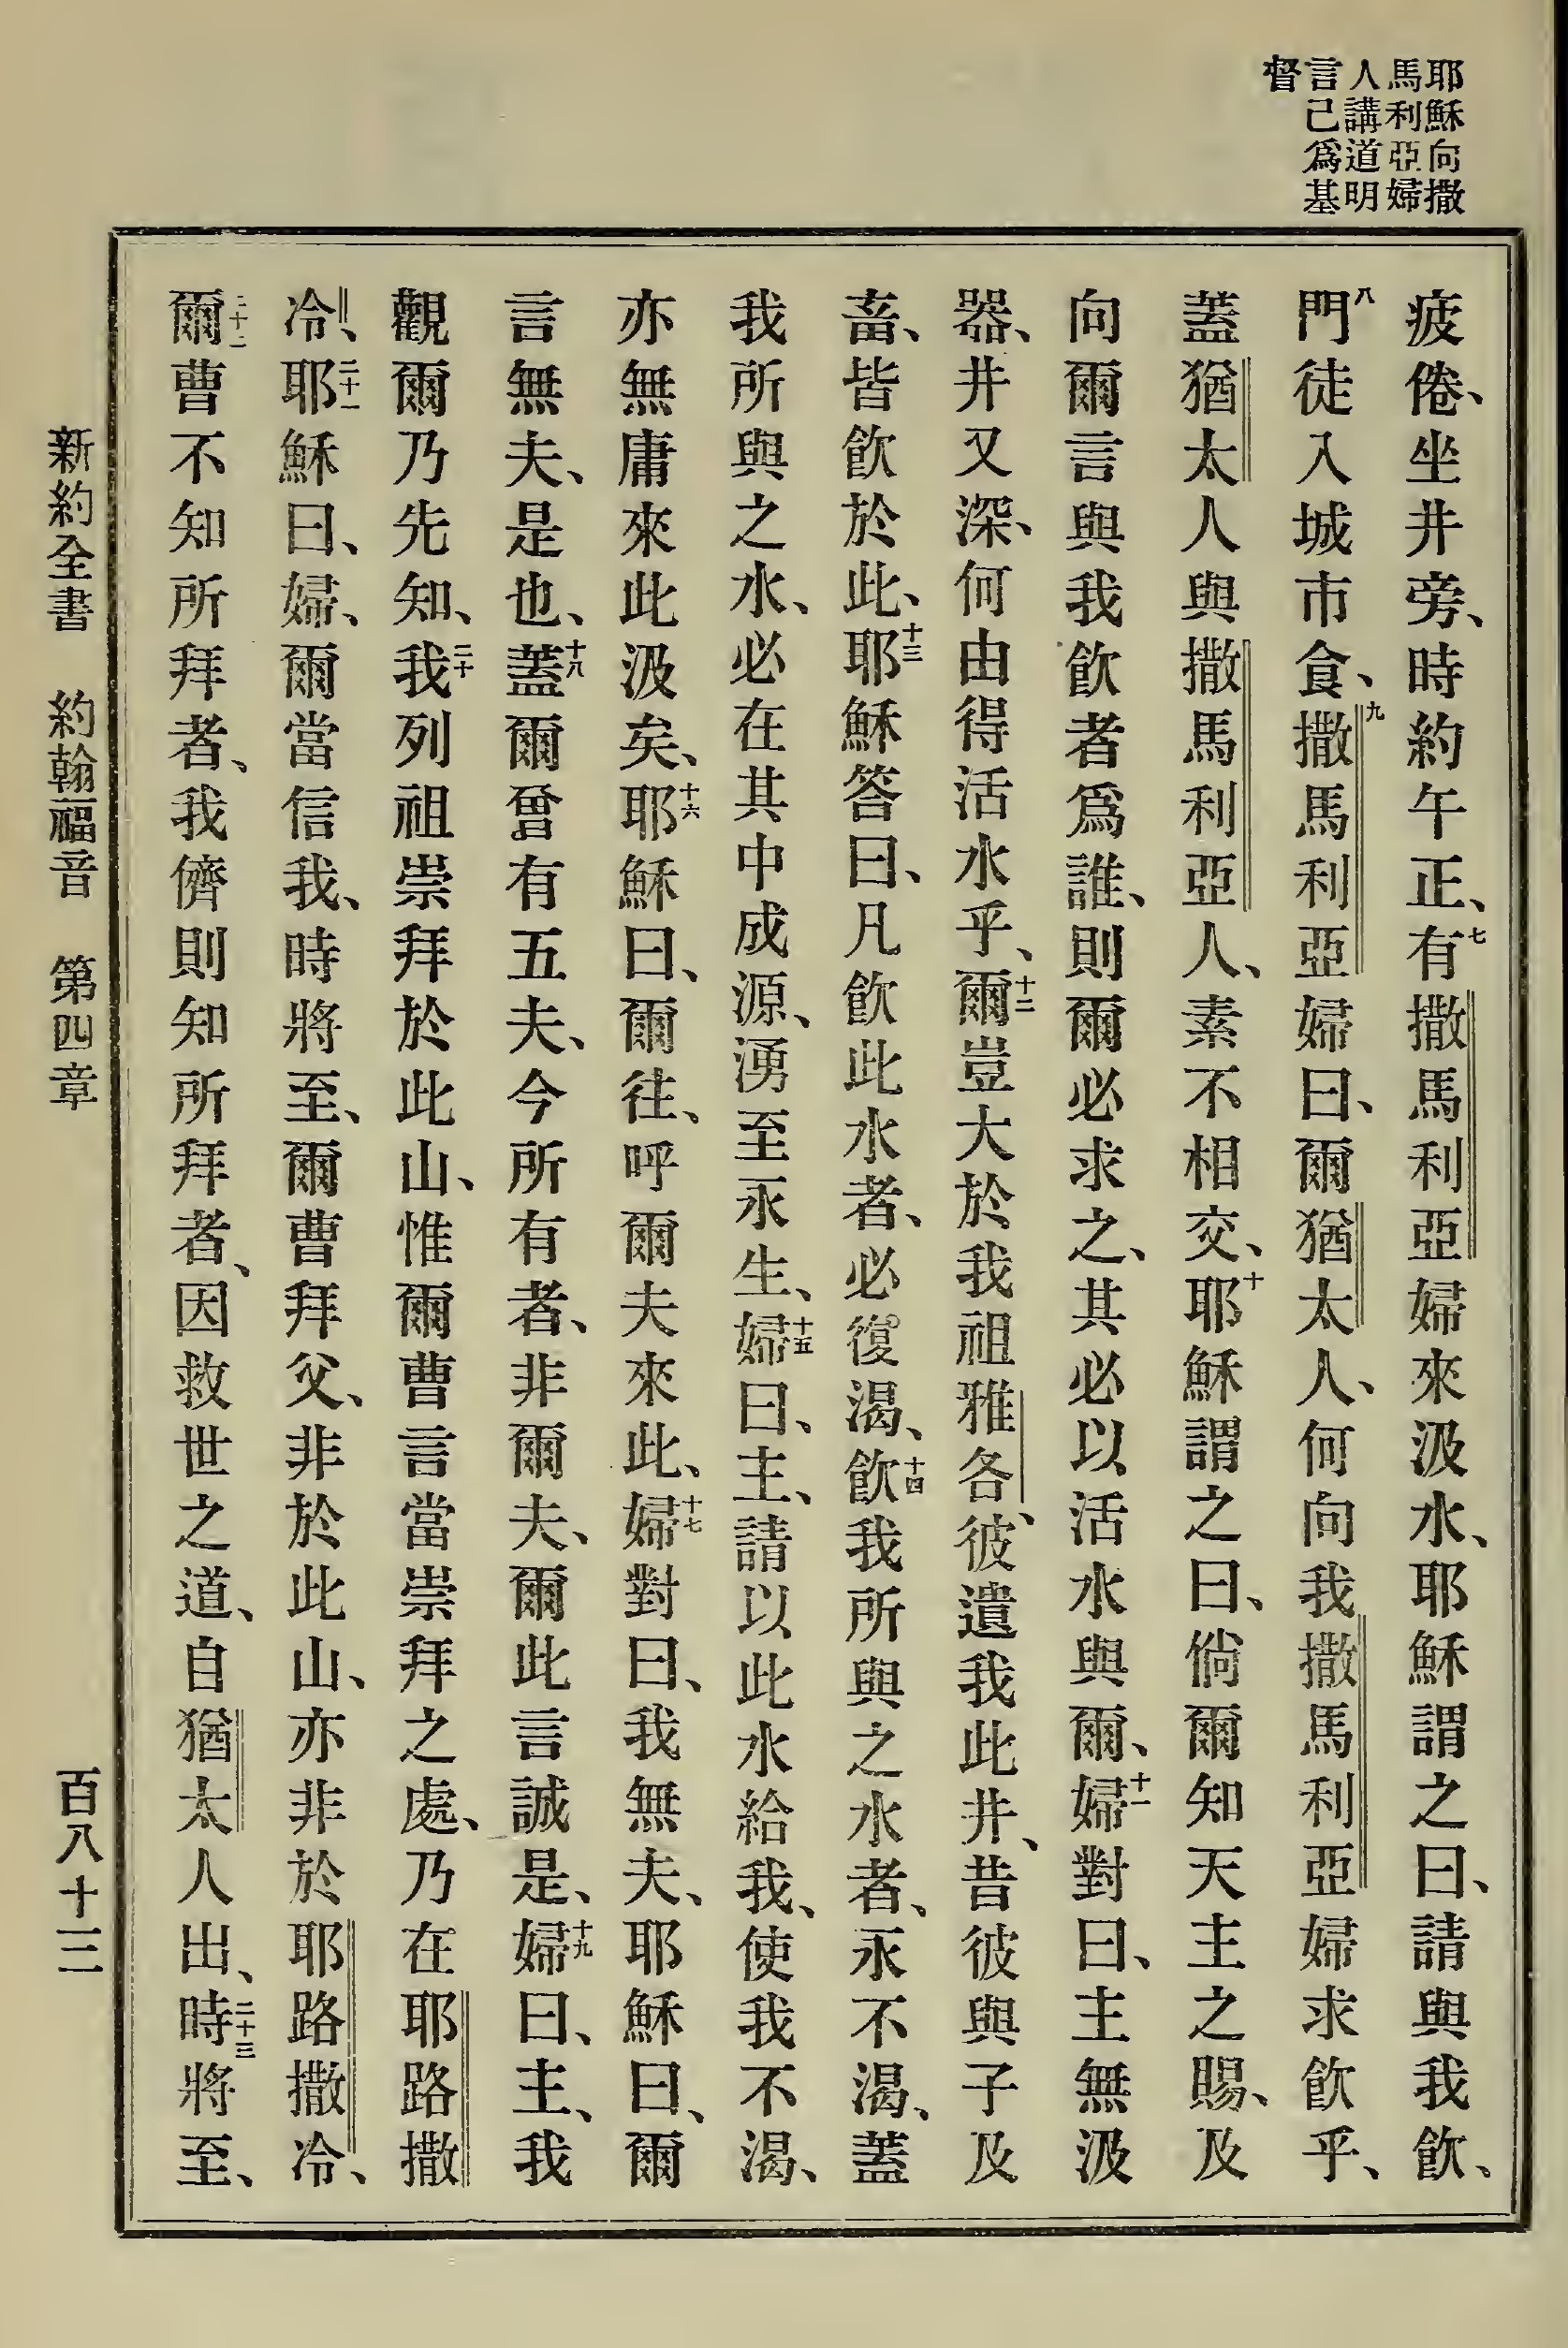 耶穌向撒
馬利亞婦
人講道明
言己爲基
督
疲倦、坐井旁、時約午正、七有撒馬利亞婦來汲水、耶穌謂之曰、請與我飲、
八門徒入城市食、九撒馬利亞婦曰、爾猶太人、何向我撒馬利亞婦求飲乎、
蓋猶太人與撒馬利亞人、素不相交、十耶穌謂之曰、倘爾知天主之賜、及
向爾言與我飲者爲誰、則爾必求之、其必以活水與爾、十一婦對曰、主無汲
器、井又深、何由得活水乎、十二爾豈大於我祖雅各、彼遺我此井、昔彼與子及
畜、皆飲於此、十三耶穌答曰、凡飲此水者、必復渴、十四飲我所與之水者、永不渴、蓋
我所與之水、必在其中成源、湧至永生、十五婦曰、主、請以此水給我、使我不渴、
亦無庸來此汲矣、十六耶穌曰、爾往、呼爾夫來此、十七婦對曰、我無夫、耶穌曰、爾
言無夫、是也、十八蓋爾曾有五夫、今所有者、非爾夫、爾此言誠是、十九婦曰、主、我
觀爾乃先知、二十我列祖崇拜於此山、惟爾曹言當崇拜之處、乃在耶路撒
冷、二十一耶穌曰、婦、爾當信我、時將至、爾曹拜父、非於此山、亦非於耶路撒冷、
二十二爾曹不知所拜者、我儕則知所拜者、因救世之道、自猶太人出、二十三時將至、
新約全書 約翰福音 第四章 百八十三